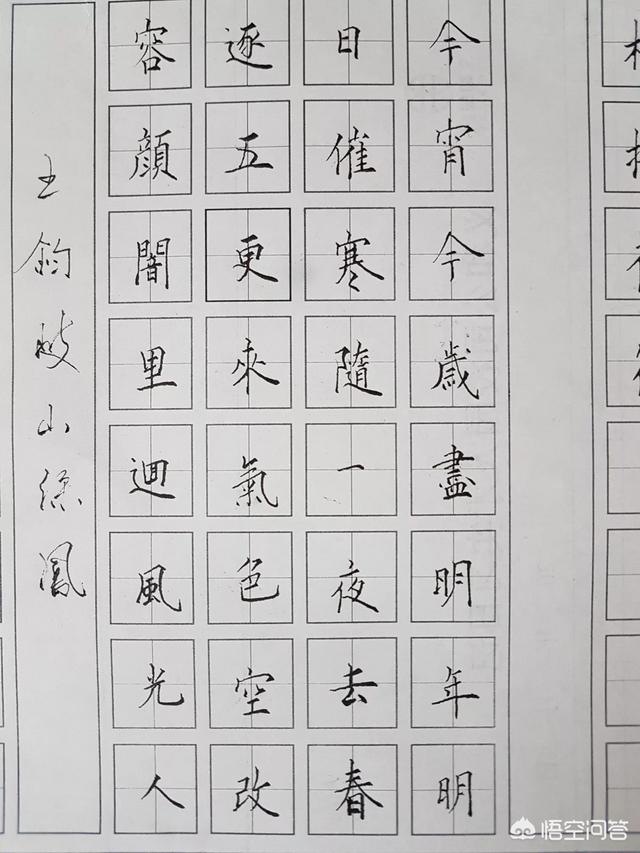 今宵今歲盡明年明
日催寒隨一夜去春
逐五更來氣色空改
容顔闇里迴風光人
山 鳳
悟空问答